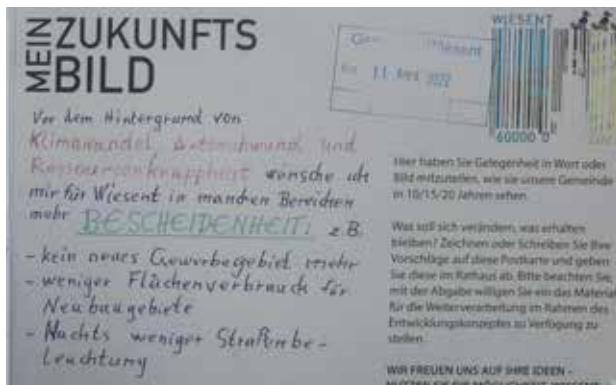 MEIN ZUKUNFTS
BILD
WIESENT
11. 2022
60000 0
Vor dem Hintergrund von
Klimawandel, Artenschwund und
Ressourcenknappheit wünsche ich
mir für Wiesent in manchen Bereichen
mehr BESCHEIDENHEIT! z.B.
- kein neues Gewerbegebiet mehr
- weniger Flächenverbrauch für
Neubaugebiete
- Nachts weniger Straßenbe-
leuchtung
Hier haben Sie Gelegenheit in Wort oder
Bild mitzuteilen, wie sie unsere Gemeinde
in 10/15/20 Jahren sehen.
Was soll sich verändern, was erhalten
bleiben? Zeichnen oder Schreiben Sie Ihre
Vorschläge auf diese Postkarte und geben
Sie diese im Rathaus ab. Bitte beachten Sie,
mit der Abgabe willigen Sie ein das Material
für die Weiterverarbeitung im Rahmen des
Entwicklungskonzeptes zu Verfügung zu
stellen.
WIR FREUEN UNS AUF IHRE IDEEN -